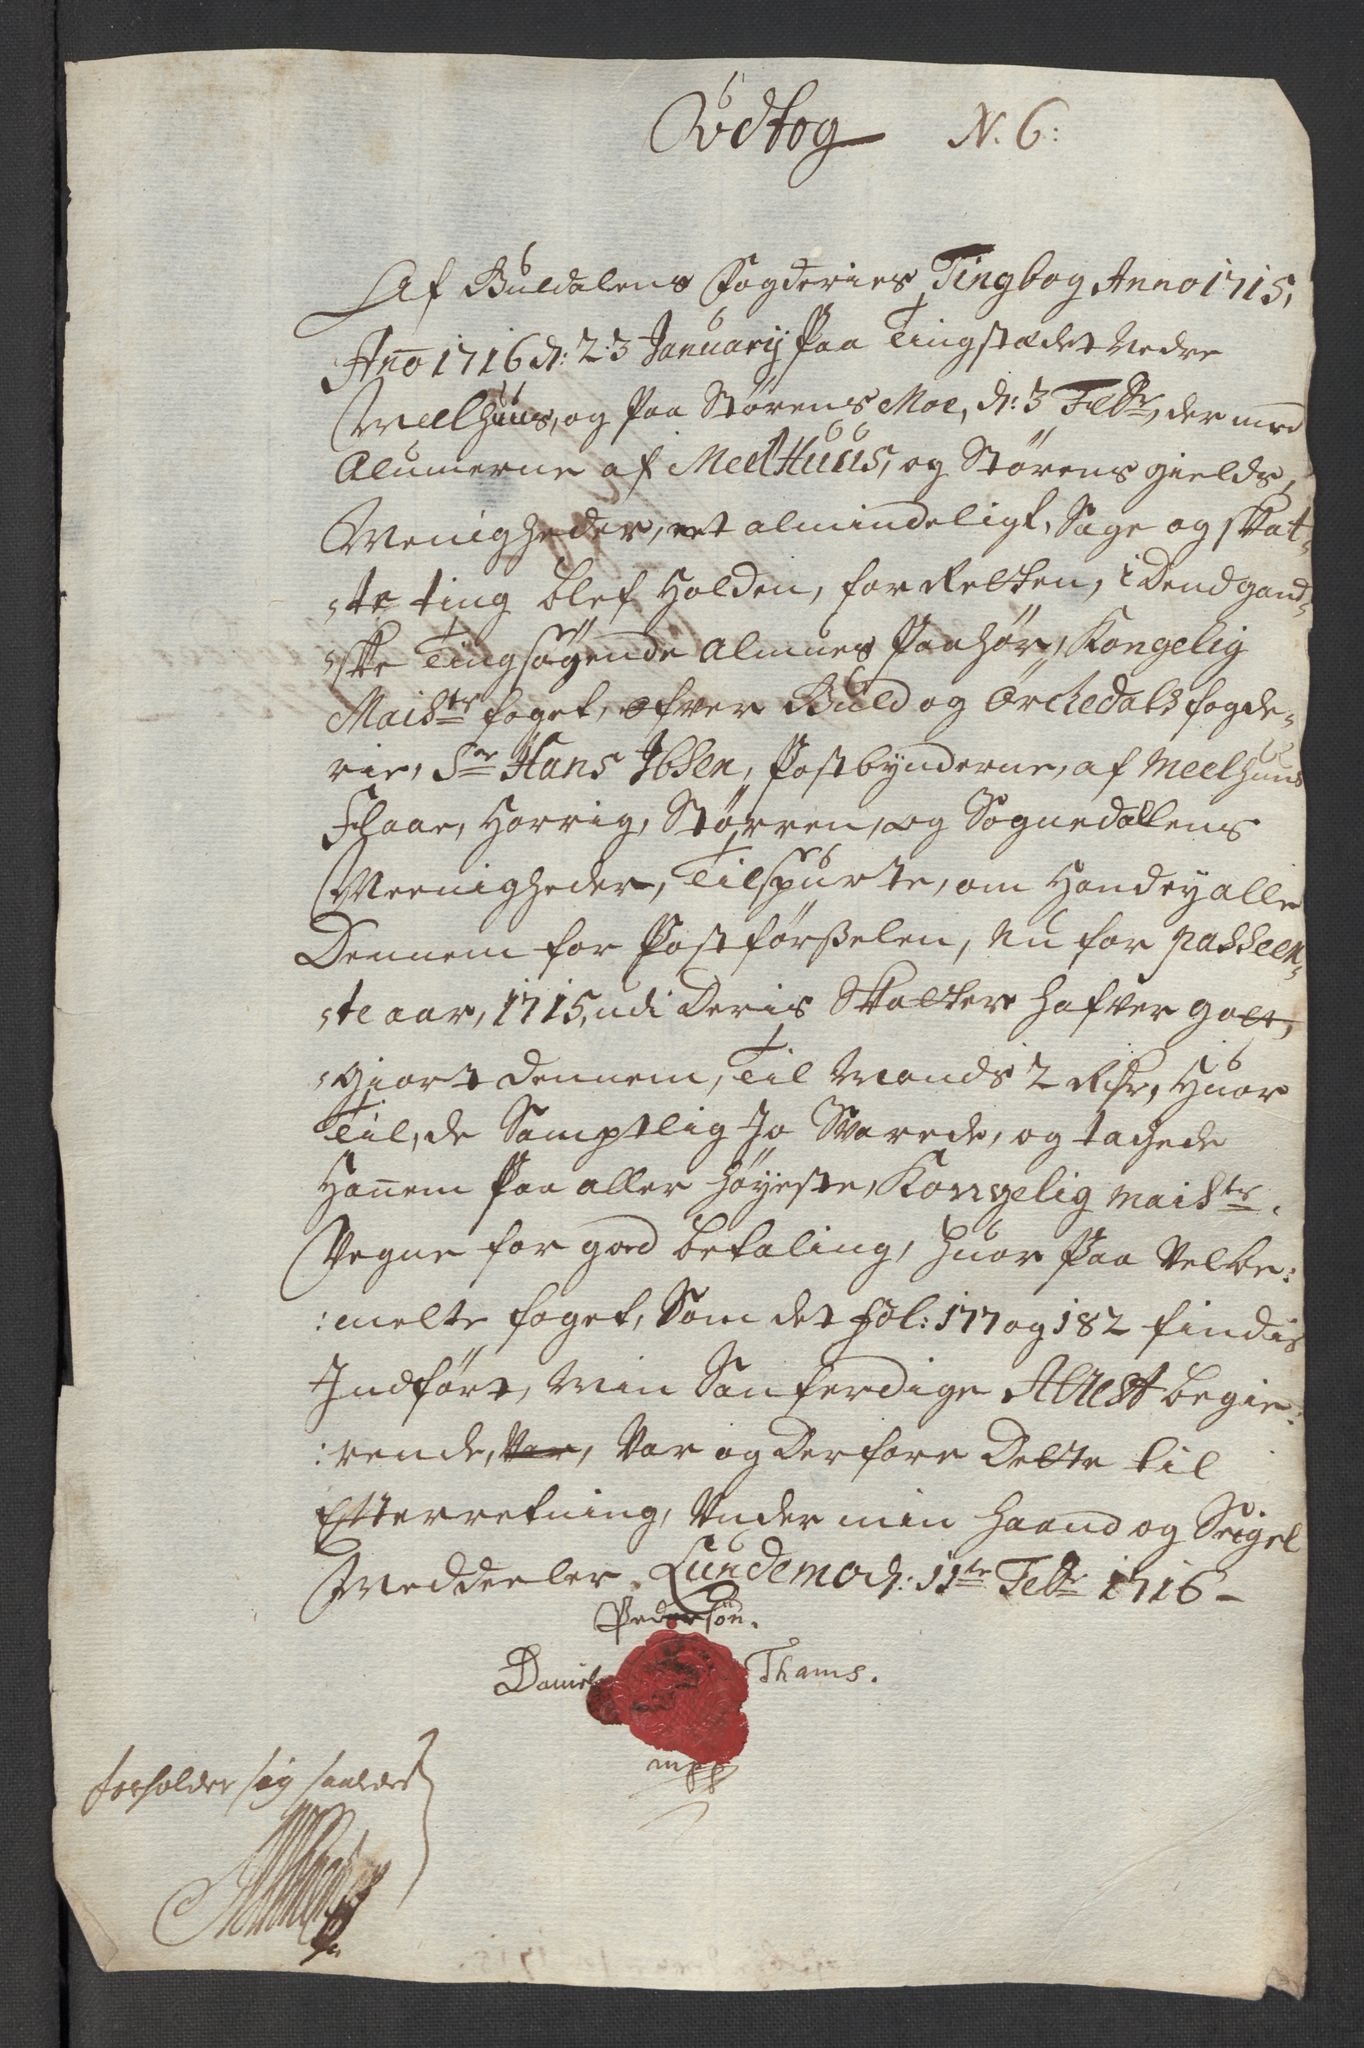 Udtog N. 6:
Af Guldalens Fogderies Tingbog Anno 1715,
Año 1716 d: 23 January Paa Tingstædet Nedre
Meelhuus, og Paa Størens Moe, d: 3 Febr, der med
Alumerne af MeelHuus, og Størens gields,
Menigheder, et almindeligt, Sage og skat-
-te ting blef Holden, for Retten, i Dend gand-
-ske Tingsøgende Almues Paahør, Kongelig
Maists foget, ofver Guld og Orckedals fogde-
rie, Sr Hans Ibsen, Postbynderne, af Meelhuus
Flaae, Horrig, Størren, og Sognedallens
Meenigheder, Tilspurte, om Hand ey alle
Dennem for Postførselen, Nu for passeer-
-te aar, 1715, udi Deris Skatter hafver godt,
-giort Dennem, Til Mands 2 Rdr, Huor
Til, de Samptlig Jo Svarede, og tachede
Hañem Paa aller høyeste, Kongelig maists.
Vegne for god betaling, huor Paa Velbe:
:melte foget, Som det fol: 177 og 182 findis
Indført, Min Sanferdige Attest begie:
:rende, Var, Var og Derfore Dette til
Efterretning, Under min Haand og Seigel
Meddeeler. Lundemo d: 11te Febr 1716 -
Pedersøn.
Daniel Thams.
mpp
forholder sig saaledes